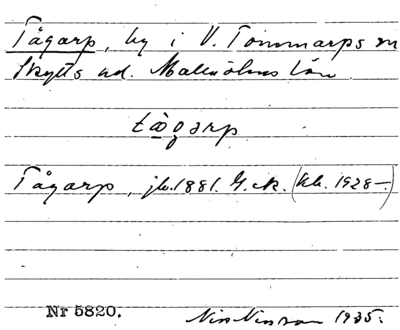 Tågarp, by i V. Tommarps sn
Skytts hd. Malmöhus län.
tå̱garp
Tågarp, jb. 1881. G.ek. (kb. 1928-.)
Nr 5820. Nils Nilsson 1935.